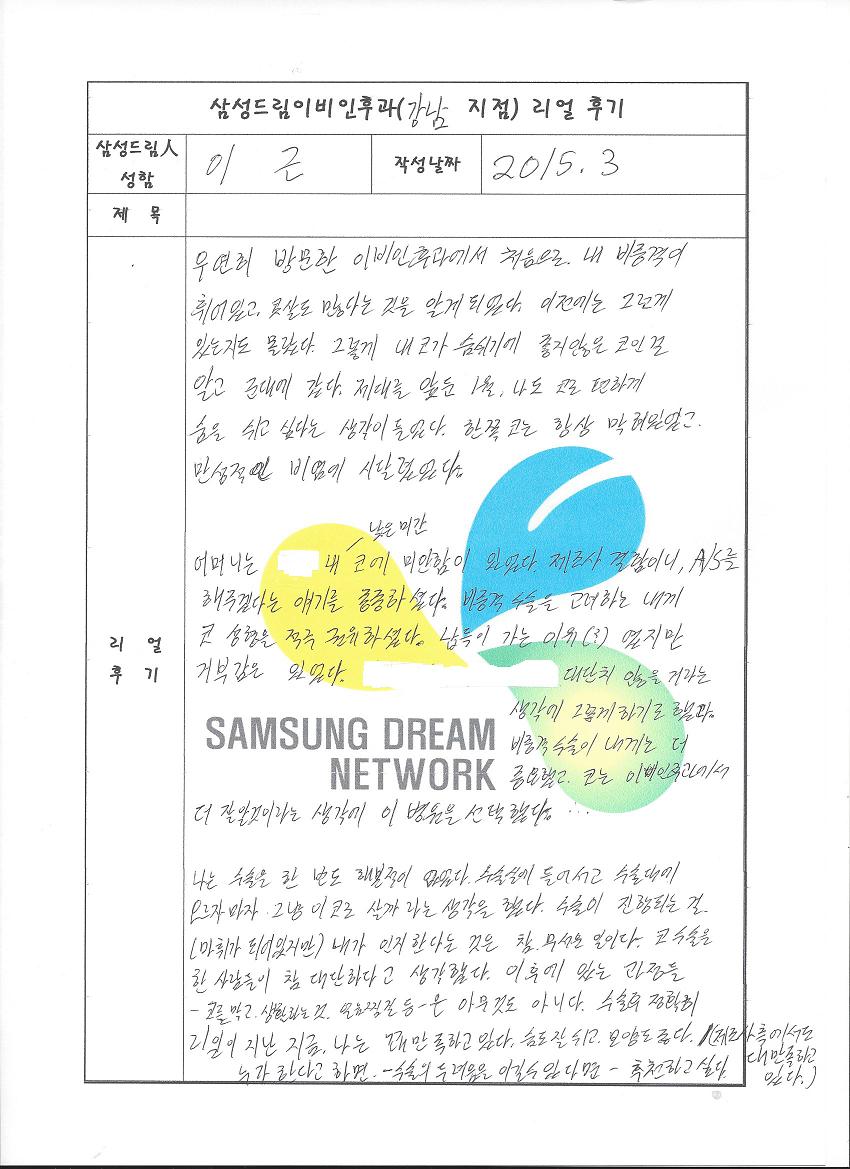 삼성드림이비인후과(강남 지점) 리얼 후기
삼성드림人 성함
이 근
작성날짜
2015. 3
제 목
리 얼
후 기
우연히 방문한 이비인후과에서 처음으로. 내 비중격이
휘어있고, 콧살도 많다는 것을 알게 되었다. 이전에는 그런게
있는지도 몰랐다. 그렇게 내 코가 숨쉬기에 좋지않은 코인걸
알고 군대에 갔다. 제대를 앞둔 1월, 나도 코로 편하게
숨을 쉬고 싶다는 생각이 들었다. 한쪽 코는 항상 막혀있었고.
만성적인 비염에 시달렸었다.
낮은 미간
어머니는 내 코에 미안함이 있었다. 제조사 결함이니, A/S를
해주겠다는 얘기를 종종하셨다. 비중격 수술을 고려하는 내게
코 성형을 적극 권유하셨다. 납득이 가는 이유(?) 였지만
거부감은 있었다. 대단치 않을 거라는
생각에 그렇게 하기로 했다.
비중격수술이 내게는 더
중요했고. 코는 이비인후과에서
더 잘알것이라는 생각에 이 병원을 선택했다. ...
SAMSUNG DREAM
NETWORK
나는 수술은 한 번도 해본적이 없었다. 수술실에 들어서고 수술대에
오르자마자 그냥 이 코로 살까 라는 생각을 했다. 수술이 진행되는 걸
(마취가 되어있지만) 내가 인지한다는 것은 참 무서운 일이다. 코수술을
한 사람들이 참 대단하다고 생각했다. 이후에 있는 과정들
- 코를 막고 생활하는 것. 얼음찜질 등 - 은 아무것도 아니다. 수술의 정확히
2일이 지난 지금, 나는 대만족하고있다. 숨도 잘 쉬고. 모양도 좋다. (제조사 측에서도
대만족하고
있다.)
누가 한다고 하면. - 수술의 두려움을 이길수있다면 - 추천하고 싶다.